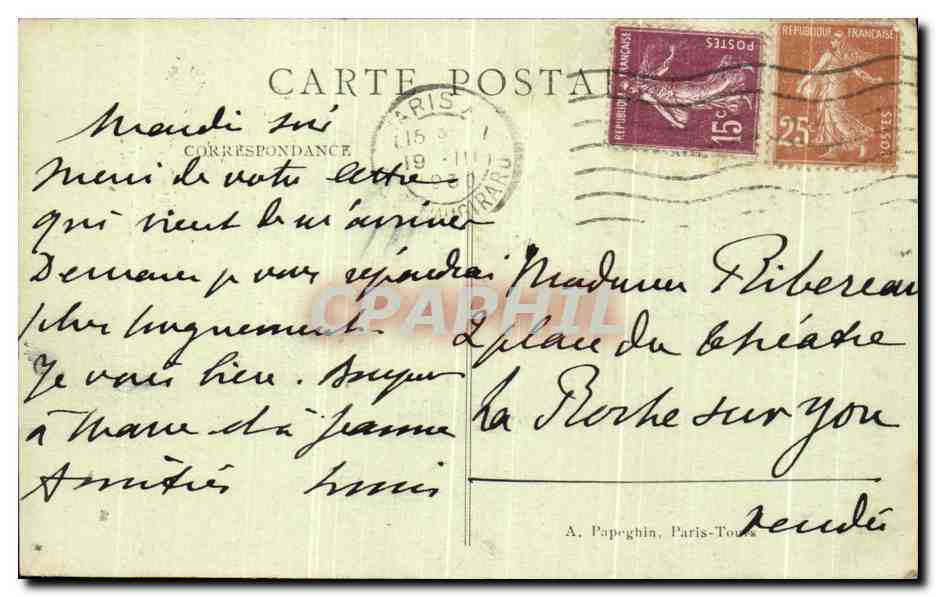 CARTE POSTALE
CORRESPONDANCE
Mardi soir
Merci de votre lettre
qui vient de m'arriver
Demain je vous répondrai
plus longuement.
Je vais bien. Bonjour
à Marie et à Jeanne
Amitiés Louis
PARIS
15
19 III
1930
VAUGIRARD
REPUBLIQUE FRANÇAISE
POSTES
15c
REPUBLIQUE FRANÇAISE
25c
POSTES
Madame Ribereau
2 place du théatre
La Roche sur Yon
Vendée
A. Papeghin, Paris-Tours
CPAPHIL